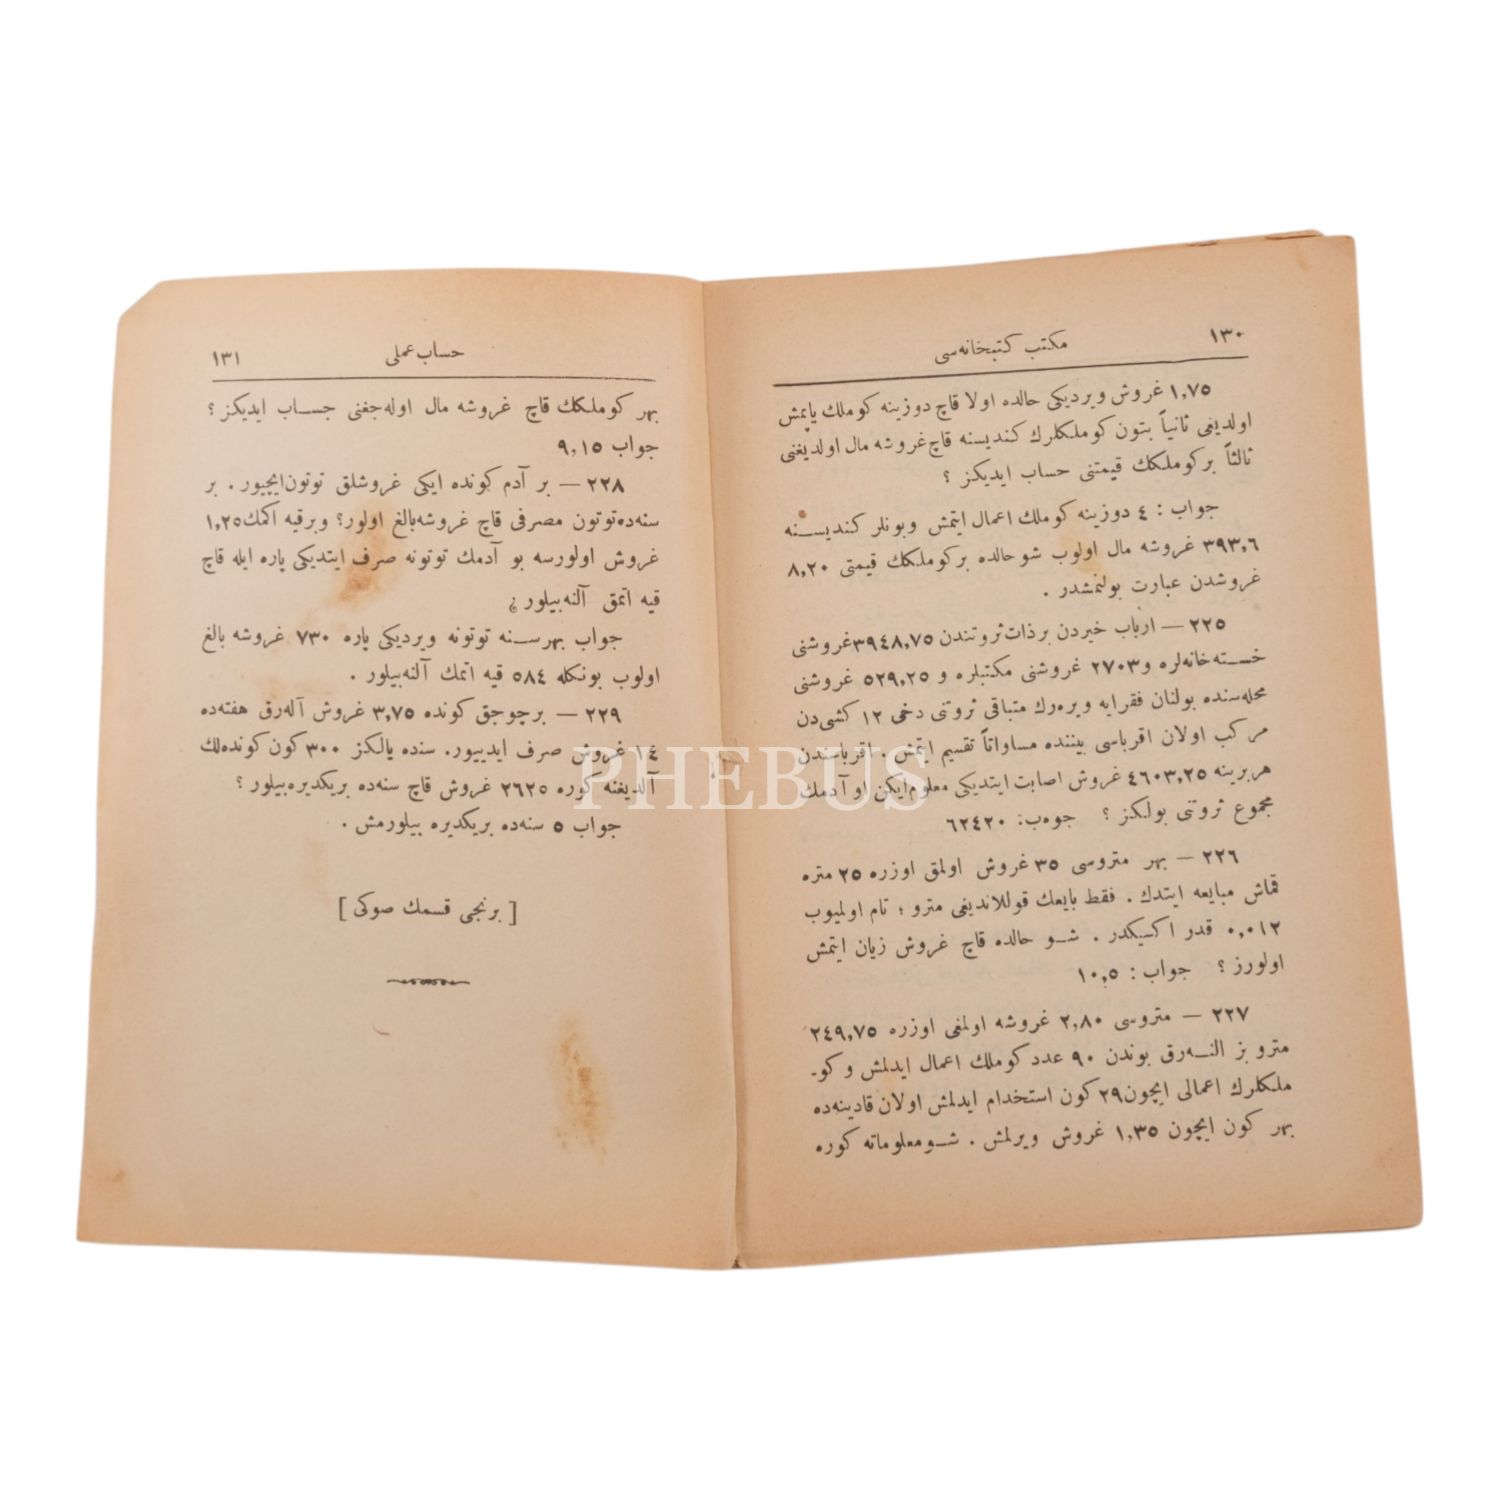 ١٣٠
مكتب كتبخانه‌سی
١,٧٥ غروش ویردیكی حالده اولا قاچ دوزینه كوملك یاپمش
اولدیغی ثانیاً بتون كوملكلرك كندیسنه قاچ غروشه مال اولدیغنی
ثالثاً بر كوملكك قیمتنی حساب ایدیكز ؟
جواب : ٤ دوزینه كوملك اعمال ایتمش وبونلر كندیسنه
٣٩٣,٦ غروشه مال اولوب شو حالده بر كوملكك قیمتی ٨,٢٠
غروشدن عبارت بولنمشدر .
٢٢٥ — ارباب خیردن بر ذات ثروتندن ٣٩٤٨,٧٥ غروشنی
خسته‌خانه‌لره و ٢٧٠٣ غروشنی مكتبلره و ٥٢٩,٢٥ غروشنی
محله‌سنده بولنان فقرایه ویره‌رك متباقی ثروتنی دخی ١٢ كشی‌دن
مركب اولان اقرباسی بیننده مساواتاً تقسیم ایتمش . اقرباسندن
هربرینه ٤٦٠٣,٢٥ غروش اصابت ایتدیكی معلوم ایكن او آدمك
مجموع ثروتنی بولكز ؟ جوه‌ب: ٦٢٤٢٠
٢٢٦ — بهر متروسی ٣٥ غروش اولمق اوزره ٢٥ متره
قماش مبایعه ایتدك . فقط بایعك قوللاندیغی مترو ؛ تام اولمیوب
٠,٠١٢ قدر اكسیكدر . شو حالده قاچ غروش زیان ایتمش
اولورز ؟ جواب : ١٠,٥
٢٢٧ — متروسی ٢,٨٠ غروشه اولمغی اوزره ٢٤٩,٧٥
مترو بز النه‌رق بوندن ٩٠ عدد كوملك اعمال ایدلمش و كو-
ملكلرك اعمالی ایچون ٢٩ كون استخدام ایدلمش اولان قادینه‌ده
بهر كون ایچون ١,٣٥ غروش ویرلمش . شو معلوماته كوره
حساب عملی
١٣١
بهر كوملكك قاچ غروشه مال اوله‌جغنی حساب ایدیكز ؟
جواب ٩,١٥
٢٢٨ — بر آدم كونده ایكی غروشلق توتون ایچیور . بر
سنه‌ده توتون مصرفی قاچ غروشه بالغ اولور؟ وبرقیه اكمك ١,٢٥
غروش اولورسه بو آدمك توتونه صرف ایتدیكی پاره ایله قاچ
قیه اتمق آلنه‌بیلور ؟
جواب بهرسنه توتونه ویردیكی پاره ٧٣٠ غروشه بالغ
اولوب بونكله ٥٨٤ قیه اتمك آلنه‌بیلور .
٢٢٩ — بر چوجق كونده ٣,٧٥ غروش آله‌رق هفته‌ده
١٤ غروش صرف ایدییور. سنده یالكز ٣٠٠ كون كونده‌لك
آلدیغنه كوره ٢٦٢٥ غروش قاچ سنه‌ده بریكدیره‌بیلور ؟
جواب ٥ سنه‌ده بریكدیره بیلورمش .
[ برنجی قسمك صوكی ]
PHEBUS